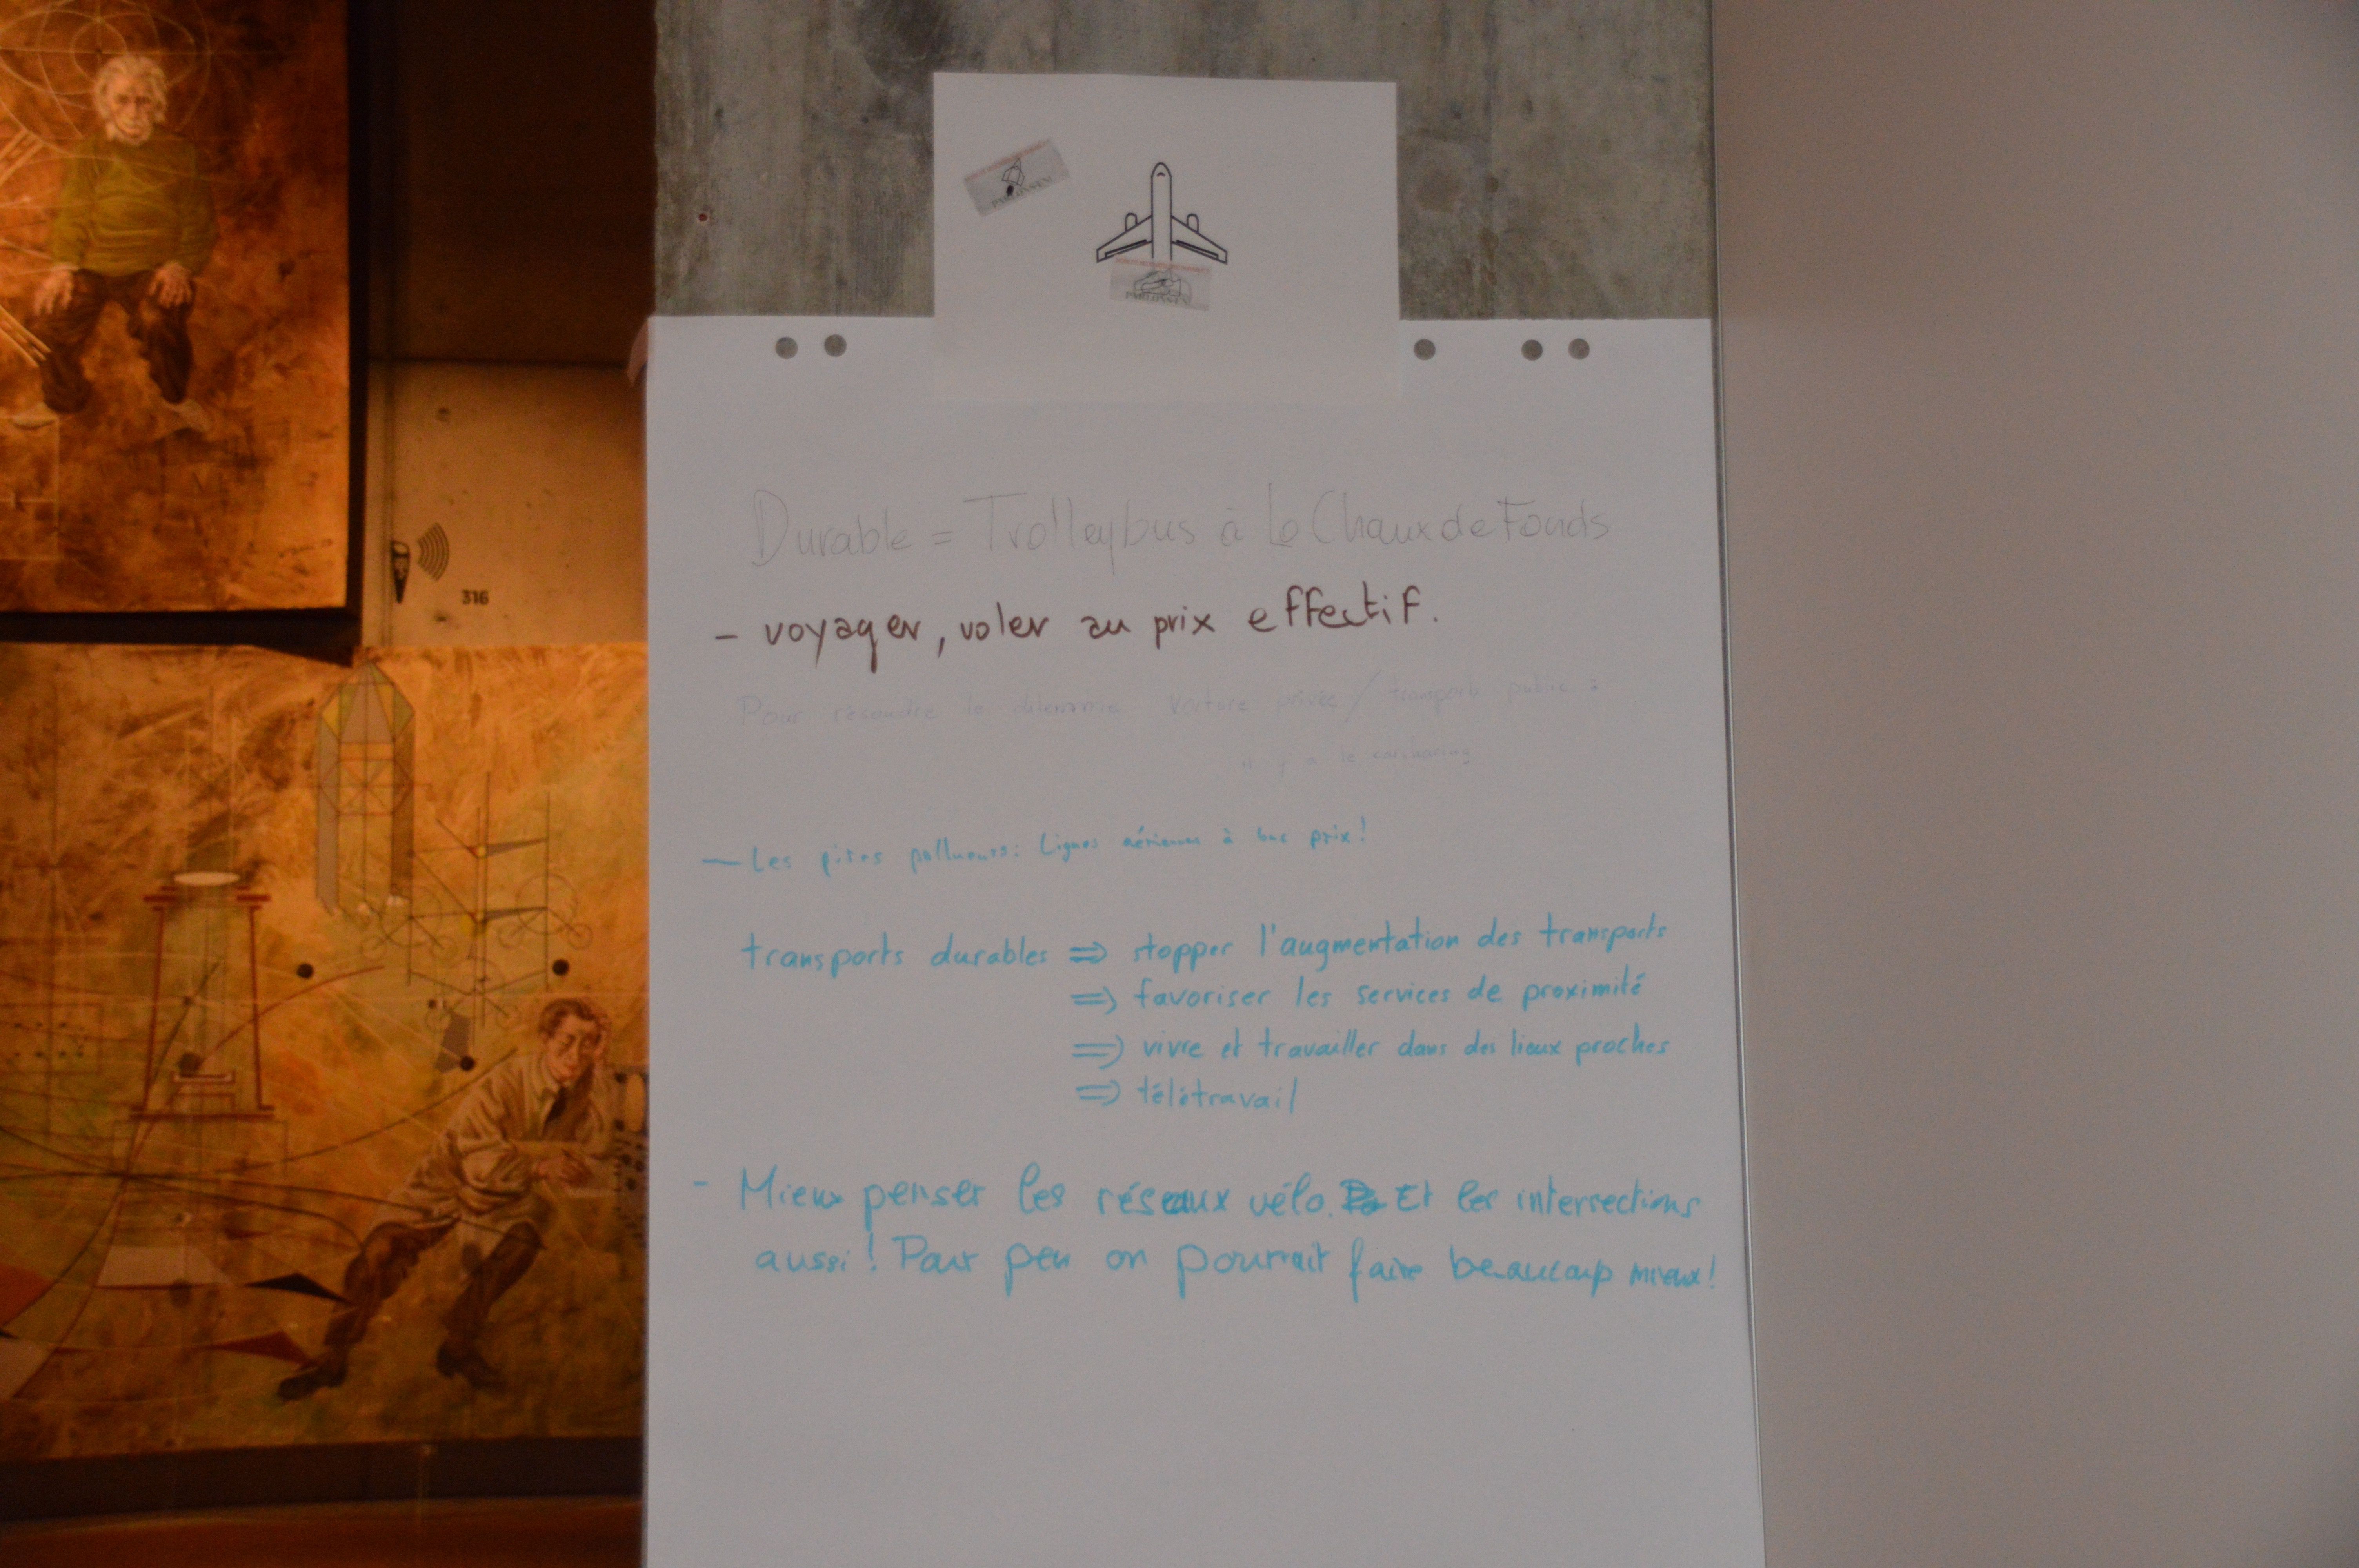 Durable = Trolleybus à La Chaux de Fonds
- voyager, voler au prix effectif.
Pour résoudre le dilemme voiture privée / transports public :
il y a le carsharing
316
- Les pires pollueurs : Lignes aériennes à bas prix !
transports durables => stopper l'augmentation des transports
=> favoriser les services de proximité
=> vivre et travailler dans des lieux proches
=> télétravail
- Mieux penser les réseaux vélo. Et les intersections
aussi ! Pour peu on pourrait faire beaucoup mieux !